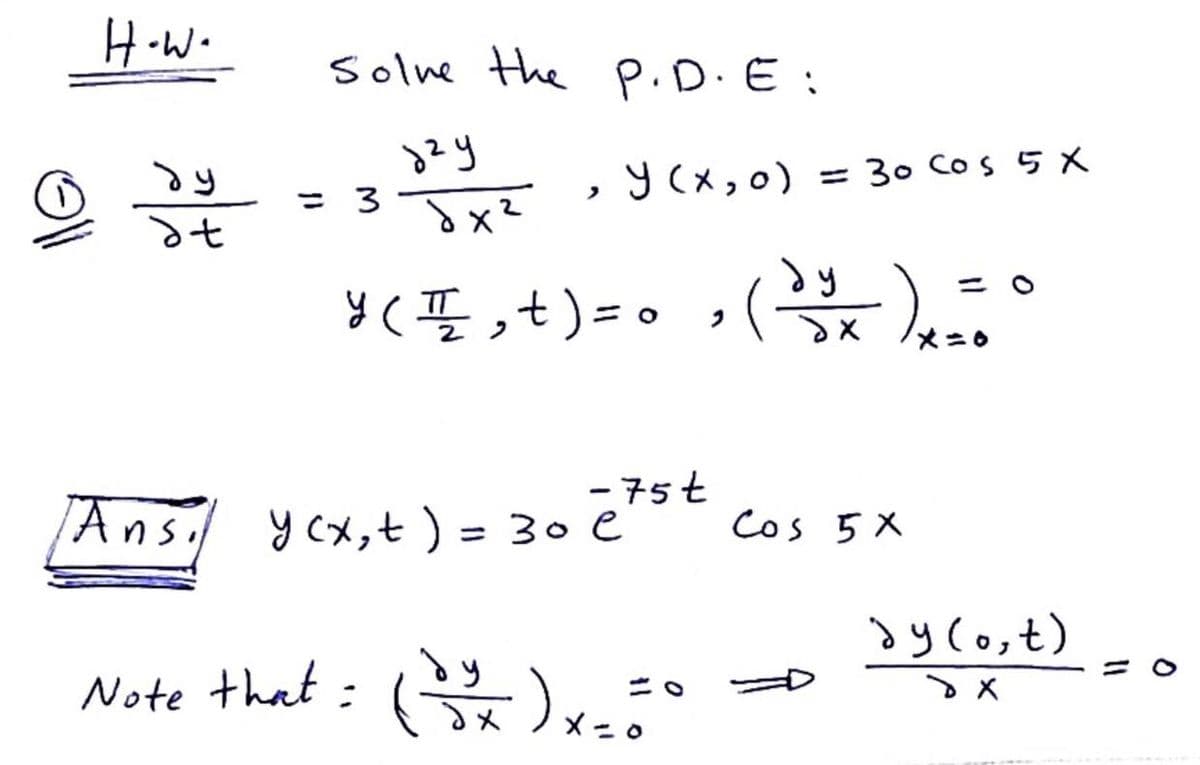 H.W. Solve the P.D.E :
① ∂y/∂t = 3 ∂²y/∂x² , y(x,0) = 30 cos 5x
y(π/2,t)=0 , (∂y/∂x)ₓ₌₀ = 0
Ans. y(x,t) = 30 e^-75t cos 5x
Note that : (∂y/∂x)ₓ₌₀ =0 ⇒ ∂y(0,t)/∂x = 0